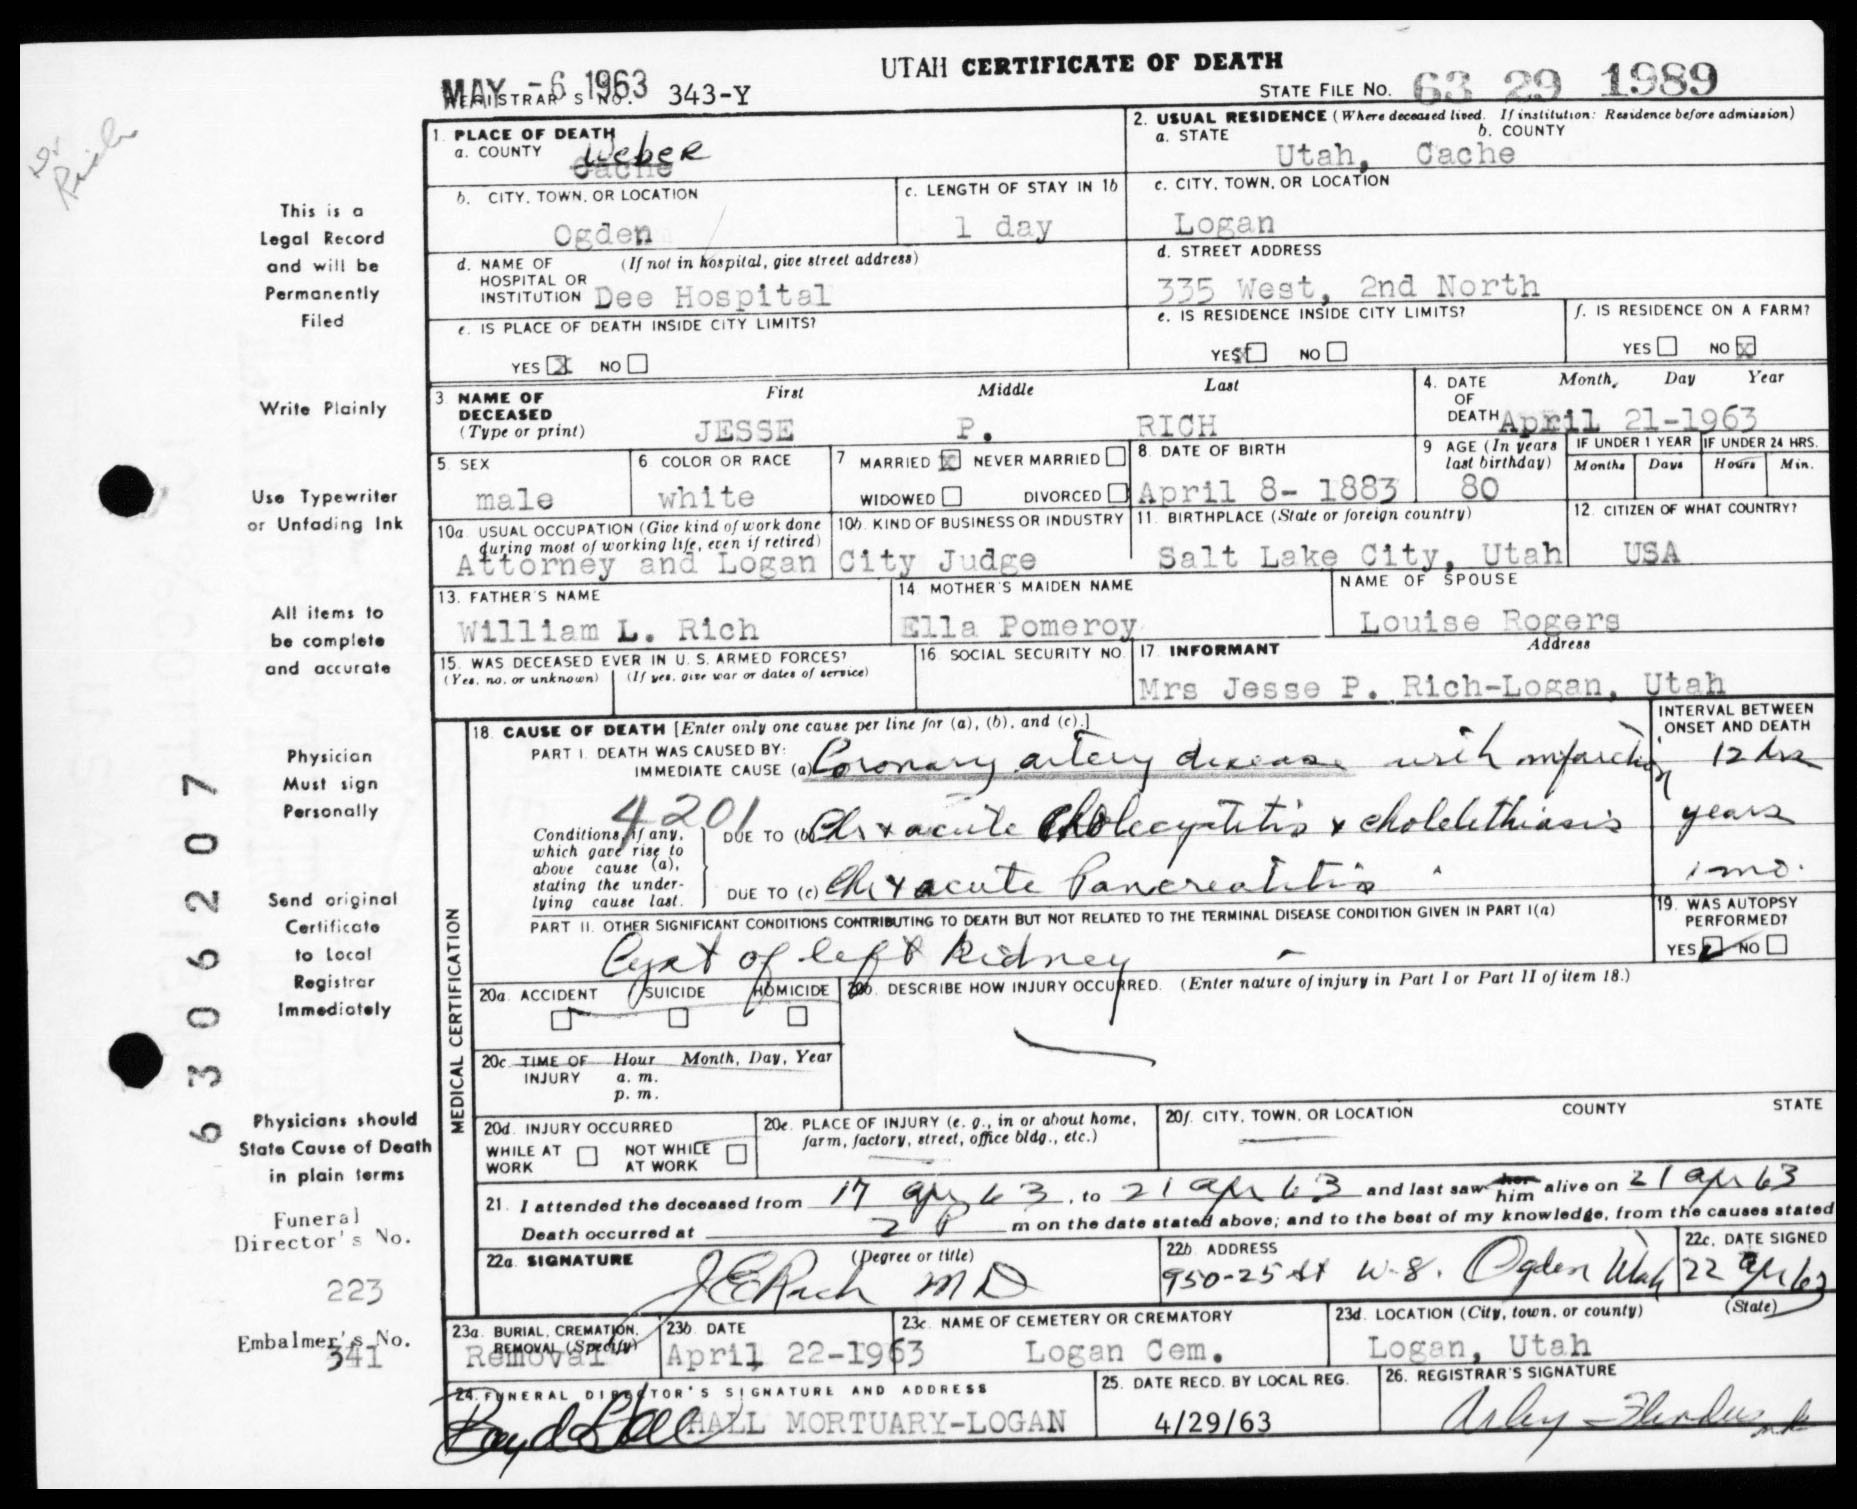 UTAH CERTIFICATE OF DEATH
MAY -6 1963
REGISTRAR'S NO. 343-Y
STATE FILE NO. 63 29 1989
Dr Rich
This is a
Legal Record
and will be
Permanently
Filed
Write Plainly
Use Typewriter
or Unfading Ink
All items to
be complete
and accurate
Physician
Must sign
Personally
Send original
Certificate
to Local
Registrar
Immediately
Physicians should
State Cause of Death
in plain terms
Funeral
Director's No.
223
Embalmer's No.
341
6306207
1. PLACE OF DEATH
a. COUNTY Weber
Cache
2. USUAL RESIDENCE (Where deceased lived. If institution: Residence before admission)
a. STATE b. COUNTY
Utah, Cache
b. CITY, TOWN, OR LOCATION
Ogden
c. LENGTH OF STAY IN 1b
1 day
c. CITY, TOWN, OR LOCATION
Logan
d. NAME OF (If not in hospital, give street address)
HOSPITAL OR
INSTITUTION Dee Hospital
d. STREET ADDRESS
335 West, 2nd North
e. IS PLACE OF DEATH INSIDE CITY LIMITS?
YES X NO
e. IS RESIDENCE INSIDE CITY LIMITS?
YES X NO
f. IS RESIDENCE ON A FARM?
YES NO X
3 NAME OF DECEASED (Type or print)
First Middle Last
JESSE P. RICH
4. DATE OF DEATH Month, Day Year
April 21-1963
5. SEX
male
6. COLOR OR RACE
white
7 MARRIED X NEVER MARRIED
WIDOWED DIVORCED
8. DATE OF BIRTH
April 8- 1883
9 AGE (In years last birthday)
80
IF UNDER 1 YEAR IF UNDER 24 HRS.
Months Days Hours Min.
10a. USUAL OCCUPATION (Give kind of work done
during most of working life, even if retired)
10b. KIND OF BUSINESS OR INDUSTRY
Attorney and Logan City Judge
11. BIRTHPLACE (State or foreign country)
Salt Lake City, Utah
12. CITIZEN OF WHAT COUNTRY?
USA
13. FATHER'S NAME
William L. Rich
14. MOTHER'S MAIDEN NAME
Ella Pomeroy
NAME OF SPOUSE
Louise Rogers
15. WAS DECEASED EVER IN U. S. ARMED FORCES?
(Yes, no, or unknown) (If yes, give war or dates of service)
16. SOCIAL SECURITY NO.
17. INFORMANT Address
Mrs Jesse P. Rich-Logan, Utah
MEDICAL CERTIFICATION
18. CAUSE OF DEATH [Enter only one cause per line for (a), (b), and (c).]
INTERVAL BETWEEN
ONSET AND DEATH
PART I. DEATH WAS CAUSED BY:
IMMEDIATE CAUSE (a) Coronary artery disease with infarction 12 hrs
4201
Conditions, if any,
which gave rise to
above cause (a),
stating the under-
lying cause last.
DUE TO (b) Chr & acute Cholecystitis & cholelithiasis years
DUE TO (c) Chr & acute Pancreatitis 1 mo.
PART II. OTHER SIGNIFICANT CONDITIONS CONTRIBUTING TO DEATH BUT NOT RELATED TO THE TERMINAL DISEASE CONDITION GIVEN IN PART I(a)
Cyst of left kidney
19. WAS AUTOPSY
PERFORMED?
YES NO
20a. ACCIDENT SUICIDE HOMICIDE
20b. DESCRIBE HOW INJURY OCCURRED. (Enter nature of injury in Part I or Part II of item 18.)
20c. TIME OF INJURY Hour Month, Day, Year
a. m.
p. m.
20d. INJURY OCCURRED
WHILE AT WORK NOT WHILE AT WORK
20e. PLACE OF INJURY (e. g., in or about home,
farm, factory, street, office bldg., etc.)
20f. CITY, TOWN, OR LOCATION COUNTY STATE
21. I attended the deceased from 17 Apr 63, to 21 Apr 63 and last saw her him alive on 21 Apr 63
Death occurred at 2 P m on the date stated above; and to the best of my knowledge, from the causes stated
22a. SIGNATURE (Degree or title)
J E Rich M D
22b. ADDRESS
950-25 St W-8. Ogden Utah
22c. DATE SIGNED
22 Apr 63
23a. BURIAL, CREMATION,
REMOVAL (Specify)
Removal
23b. DATE
April 22-1963
23c. NAME OF CEMETERY OR CREMATORY
Logan Cem.
23d. LOCATION (City, town, or county) (State)
Logan, Utah
24. FUNERAL DIRECTOR'S SIGNATURE AND ADDRESS
Boyd Hall HALL MORTUARY-LOGAN
25. DATE RECD. BY LOCAL REG.
4/29/63
26. REGISTRAR'S SIGNATURE
Arley Flinders